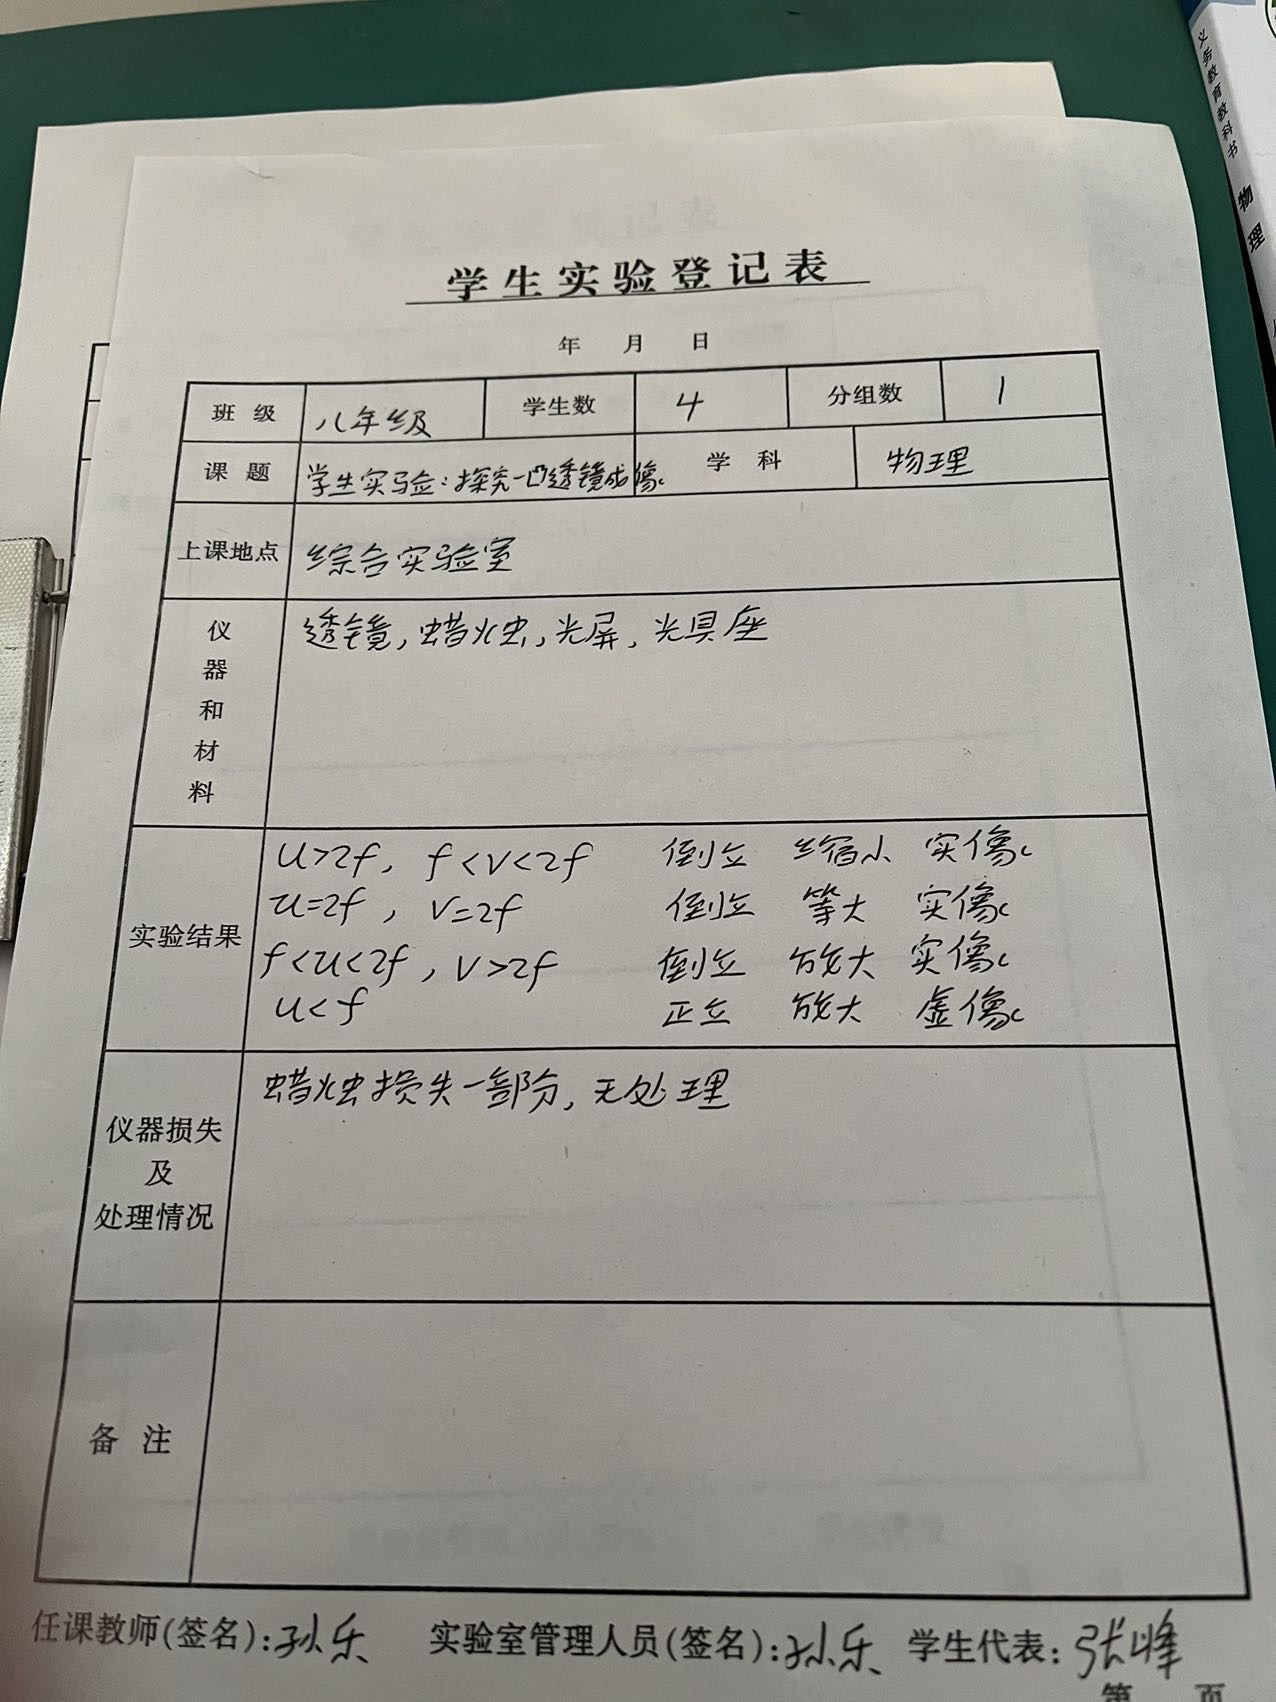 义务教育教科书 物理
学生实验登记表
年 月 日
班级 八年级 学生数 4 分组数 1
课题 学生实验：探究凸透镜成像 学科 物理
上课地点 综合实验室
仪器和材料 透镜，蜡烛，光屏，光具座
实验结果
u>2f， f<v<2f 倒立 缩小 实像
u=2f， v=2f 倒立 等大 实像
f<u<2f，v>2f 倒立 放大 实像
u<f 正立 放大 虚像
仪器损失
及
处理情况
蜡烛损失一部分，无处理
备注
任课教师(签名):孙乐 实验室管理人员(签名):孙乐 学生代表:张峰
第 页